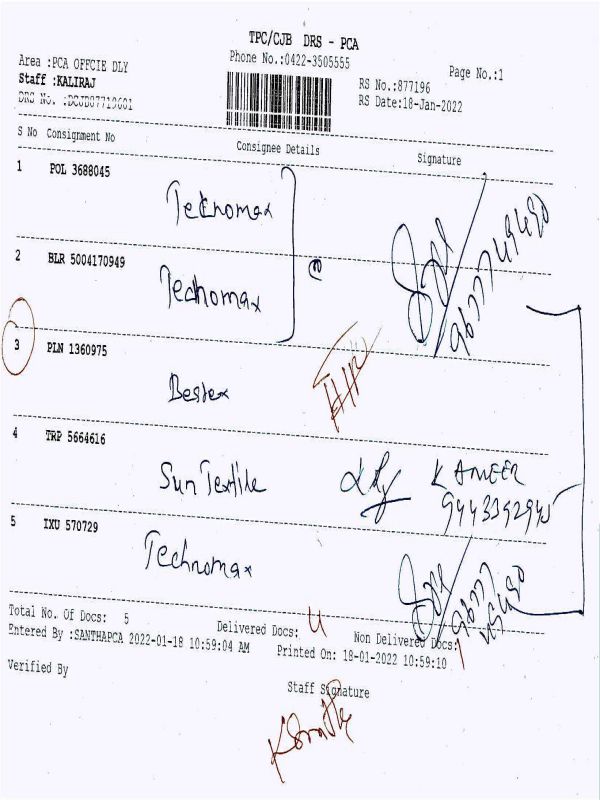 TPC/CJB DRS - PCA
Phone No.:0422-3505555
Area :PCA OFFCIE DLY
Page No.:1
Staff :KALIRAJ
RS No.:877196
DRS No. :DCJB07719601
RS Date:18-Jan-2022
S No Consignment No Consignee Details Signature
1 POL 3688045
Technomax
2 BLR 5004170949
Techomax
3 PLN 1360975
Bestex
4 TRP 5664616
Sun Textile KAMEER
9443392945
5 IXU 570729
Technomax
Total No. Of Docs: 5 Delivered Docs: 4 Non Delivered Docs: 1
Entered By :SANTHAPCA 2022-01-18 10:59:04 AM Printed On: 18-01-2022 10:59:10
Verified By
Staff Signature